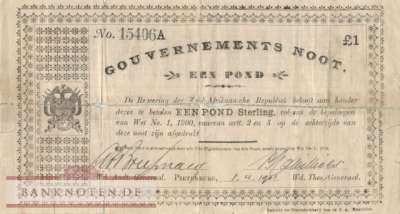 No. 15406A
£1
GOUVERNEMENTS NOOT.
EEN POND
De Regeering der Zuid-Afrikaansche Republiek belooft aan houder
dezes te betalen EEN POND Sterling, volgens de bepalingen
van Wet No. 1, 1900, waarvan artt. 2 en 3 op de achterzijde van
deze noot zijn afgedrukt
Wd. Auditeur Generaal. PIETERSBURG, 1.4.1901 Wd. Thes. Generaal.
BANKNOTEN.DE